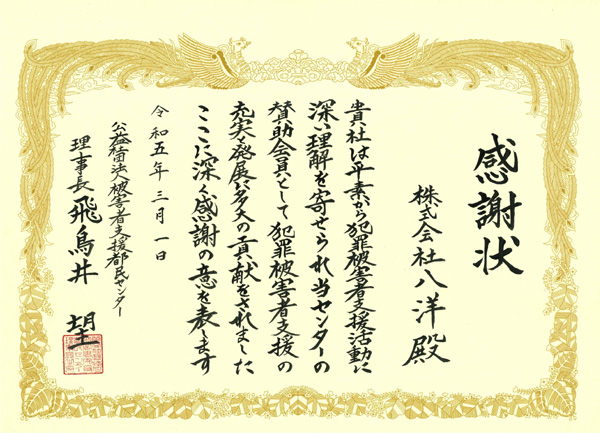 感謝状
株式会社八洋殿
貴社は平素から犯罪被害者支援活動に
深い理解を寄せられ当センターの
賛助会員として犯罪被害者支援の
充実と発展に多大の貢献をされました
ここに深く感謝の意を表します
令和五年三月一日
公益社団法人被害者支援都民センター
理事長飛鳥井望